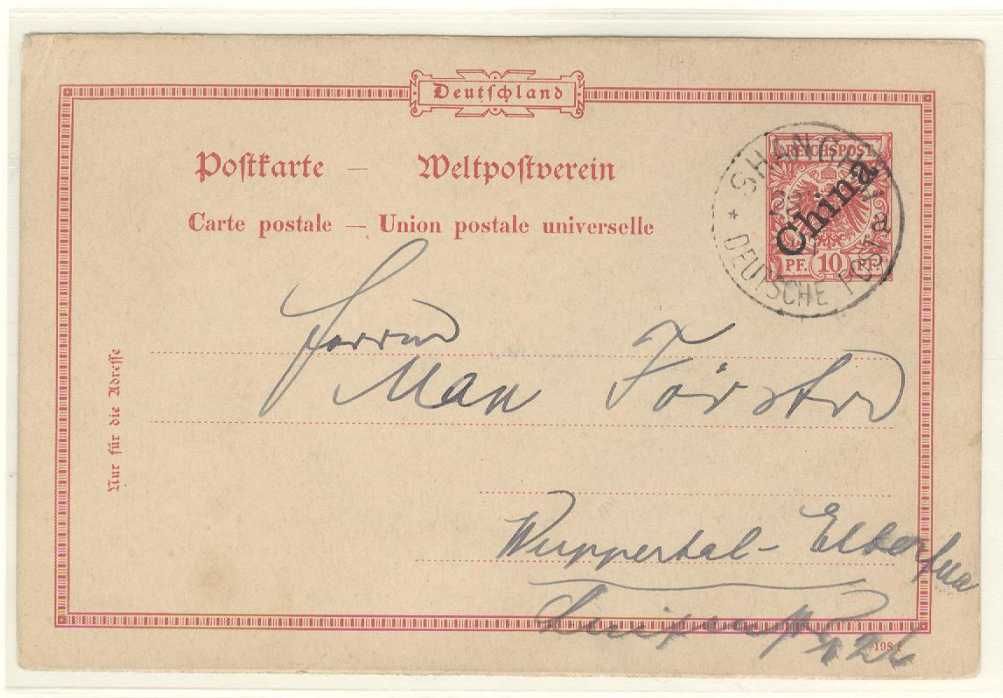 Deutschland
Postkarte — Weltpostverein
Carte postale — Union postale universelle
REICHSPOST
PF. 10 PF.
China
SHANGHAI
a
* DEUTSCHE POST
Nur für die Adresse
Herrn
Max Förster
Wuppertal-Elberfeld